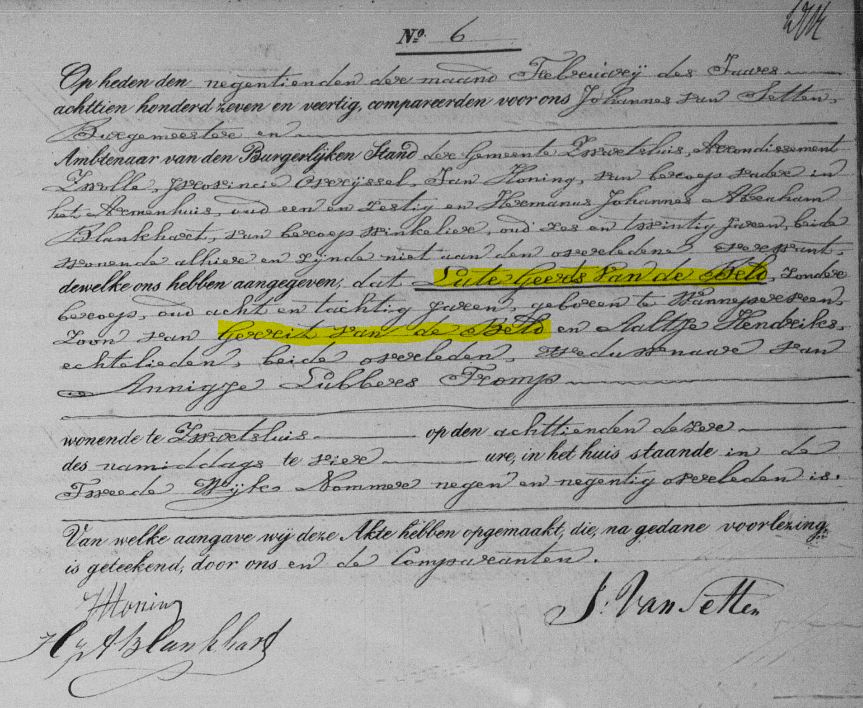 Nº. 6
Op heden den negentienden der maand Februarij des Jaars
achttien honderd zeven en veertig, compareerden voor ons Johannes van Setten,
Burgemeester en
Ambtenaar van den Burgerlijken Stand der Gemeente Zwartsluis, Arrondissement
Zwolle, provincie Overijssel, Jan Koning, van beroep vader in
het Armenhuis, oud een en zestig en Hermanus Johannes Abraham
Blankhart, van beroep winkelier, oud zes en twintig jaren, beide
wonende alhier en zijnde niet aan den overledene verwant,
dewelke ons hebben aangegeven, dat Lute Geers van de Beld, zonder
beroep, oud acht en tachtig jaren, geboren te Wanneperveen,
Zoon van Gerrit van de Beld en Aaltje Hendriks,
echtelieden, beide overleden, weduwnaar van
Annigje Lubbers Tromp
wonende te Zwartsluis op den achttienden dezer
des namiddags te vier ure, in het huis staande in de
Tweede Wijk, Nommer negen en negentig overleden is.
Van welke aangave wij deze Akte hebben opgemaakt, die, na gedane voorlezing,
is geteekend, door ons en de Comparanten.
JKoning
J. Van Setten
HJABlankhart